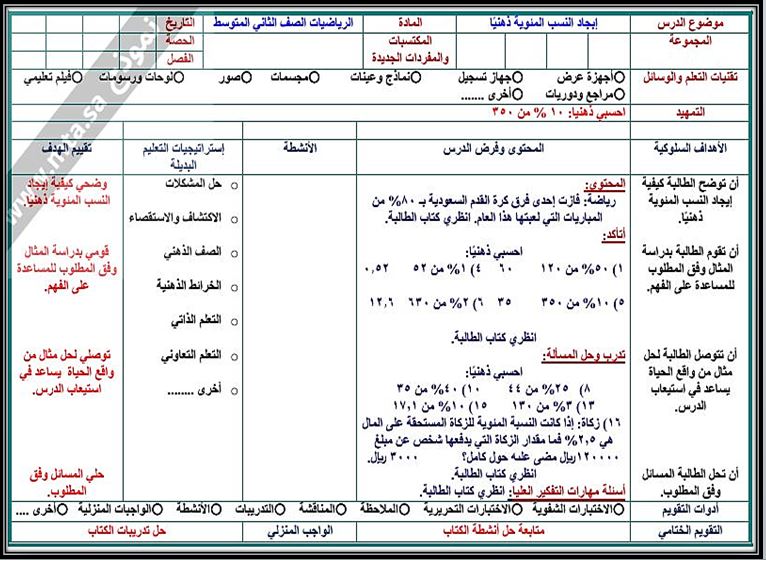 موضوع الدرس إيجاد النسب المئوية ذهنيًا المادة الرياضيات الصف الثاني المتوسط التاريخ
المجموعة المكتسبات والمفردات الجديدة الحصة
الفصل
تقنيات التعلم والوسائل Oأجهزة عرض Oجهاز تسجيل Oنماذج وعينات Oمجسمات Oصور Oلوحات ورسومات Oفيلم تعليمي
Oمراجع ودوريات Oأخرى .......
التمهيد احسبي ذهنيا: ١٠ % من ٣٥٠
الأهداف السلوكية المحتوى وفرض الدرس الأنشطة إستراتيجيات التعليم البديلة تقييم الهدف
أن توضح الطالبة كيفية
إيجاد النسب المئوية
ذهنيًا.
أن تقوم الطالبة بدراسة
المثال وفق المطلوب
للمساعدة على الفهم.
أن تتوصل الطالبة لحل
مثال من واقع الحياة
يساعد في استيعاب
الدرس.
أن تحل الطالبة المسائل
وفق المطلوب.
المحتوى:
رياضة: فازت إحدى فرق كرة القدم السعودية بـ ٨٠% من
المباريات التي لعبتها هذا العام. انظري كتاب الطالبة.
أتأكد:
احسبي ذهنيًا:
١) ٥٠% من ١٢٠ ٦٠ ٤) ١% من ٥٢ ٠,٥٢
٥) ١٠% من ٣٥٠ ٣٥ ٦) ٢% من ٦٣٠ ١٢,٦
انظري كتاب الطالبة.
تدرب وحل المسألة:
احسبي ذهنيًا:
٨) ٢٥% من ٤٤ ١٠) ٤٠% من ٣٥
١٣) ٣% من ١٣٠ ١٥) ١٠% من ١٧,١
١٦) زكاة: إذا كانت النسبة المئوية للزكاة المستحقة على المال
هي ٢,٥% فما مقدار الزكاة التي يدفعها شخص عن مبلغ
١٢٠٠٠٠ريال مضى عليه حول كامل؟ ٣٠٠٠ ريال.
انظري كتاب الطالبة.
أسئلة مهارات التفكير العليا: انظري كتاب الطالبة.
o حل المشكلات
o الاكتشاف والاستقصاء
o الصف الذهني
o الخرائط الذهنية
o التعلم الذاتي
o التعلم التعاوني
o أخرى ........
وضحي كيفية إيجاد
النسب المئوية ذهنيًا.
قومي بدراسة المثال
وفق المطلوب للمساعدة
على الفهم.
توصلي لحل مثال من
واقع الحياة يساعد في
استيعاب الدرس.
حلي المسائل وفق
المطلوب.
أدوات التقويم Oالاختبارات الشفوية Oالاختبارات التحريرية Oالملاحظة Oالمناقشة Oالتدريبات Oالأنشطة Oالواجبات المنزلية Oأخرى ....
التقويم الختامي متابعة حل أنشطة الكتاب الواجب المنزلي حل تدريبات الكتاب
نموذج
www.mta.sa